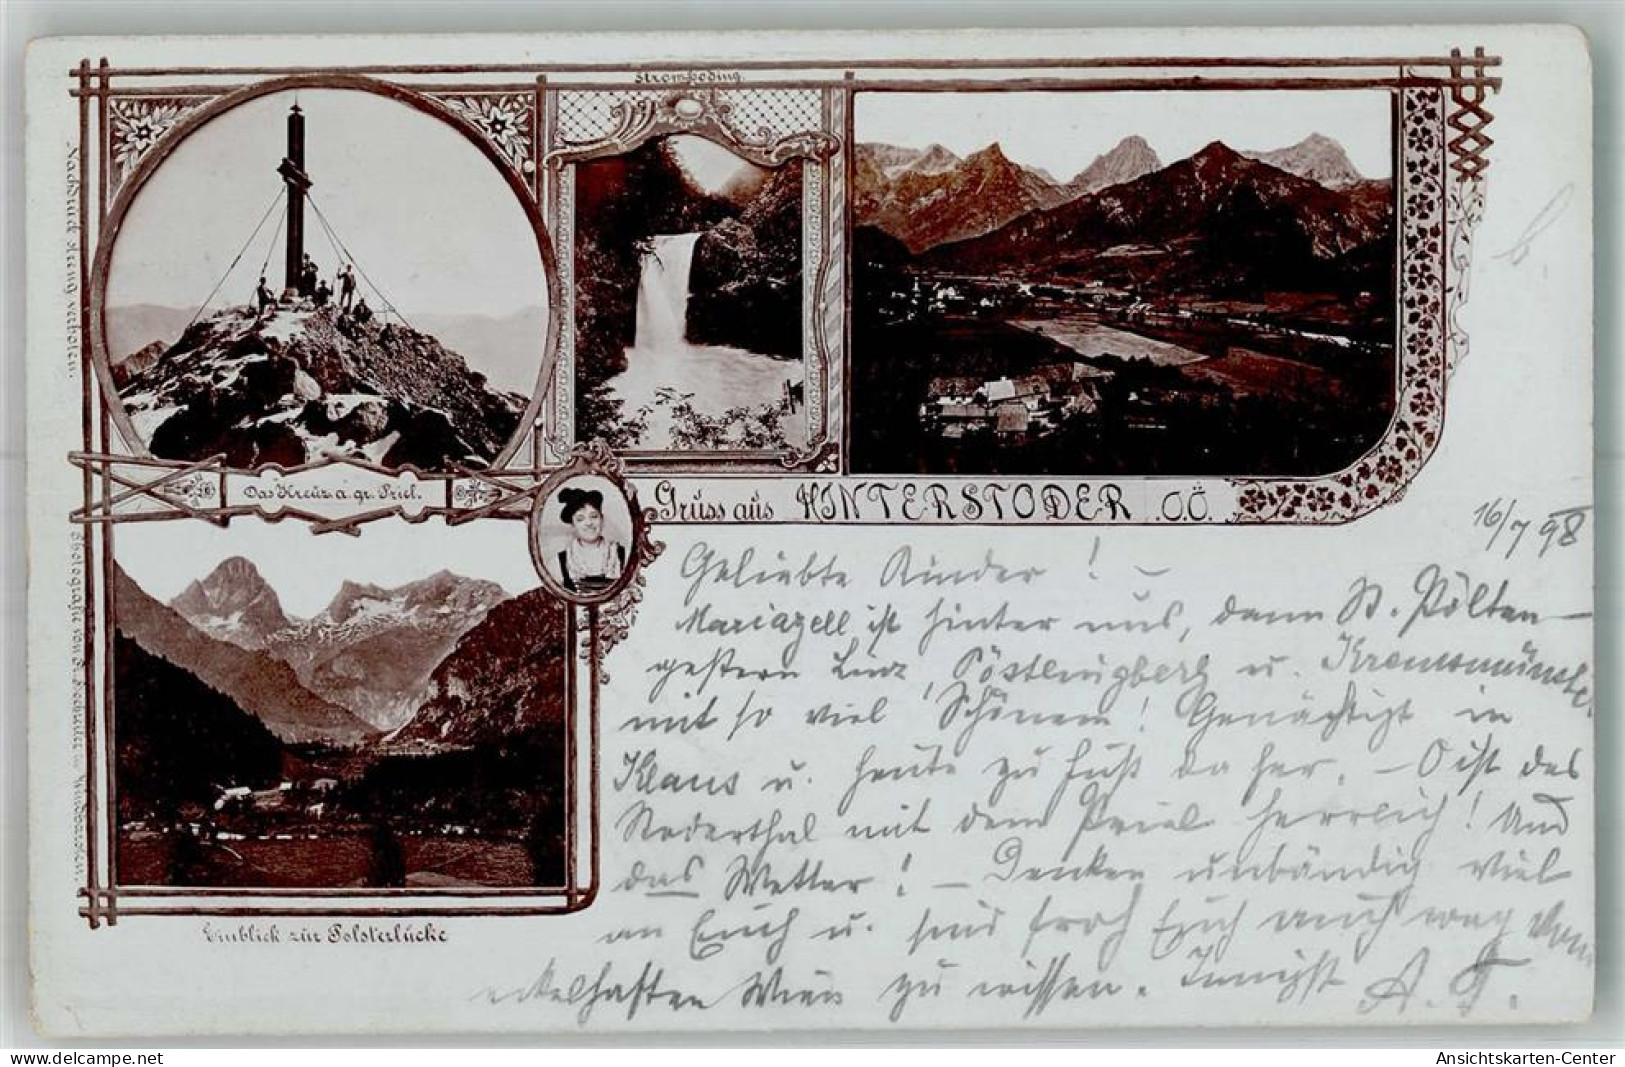 Stromboding.
Nachdruck streng verboten.
Das Kreuz a. gr. Priel.
Gruss aus HINTERSTODER O.Ö.
16/7 98
Geliebte Kinder! –
Mariazell ist hinter uns, dann St. Pölten –
gestern Linz, Pöstlingberg u. Kremsmünster
mit so viel Schönem! Genächtigt in
Klaus u. heute zu Fuß daher. – O ist das
Stodertal mit dem Priel herrlich! Und
das Wetter! – Denken unbändig viel
an Euch u. sind froh Euch auch weg vom
ekelhaften Wien zu wissen. Innigst A. F.
Photografie von in Windischgarsten.
Einblick zur Polsterlücke
www.delcampe.net
Ansichtskarten-Center